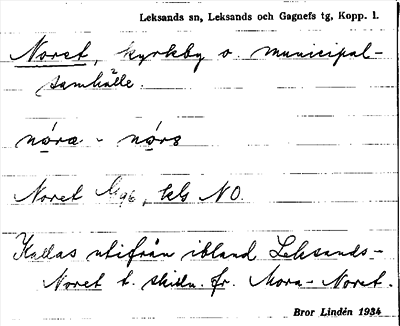 Leksands sn, Leksands och Gagnefs tg, Kopp. l.
Noret, kyrkby o. municipal-
samhälle.
nóra - nórs
Noret 96, kls NO.
Kallas utifrån ibland Leksands-
Noret t. skilln. fr. Mora-Noret.
Bror Lindén 1934